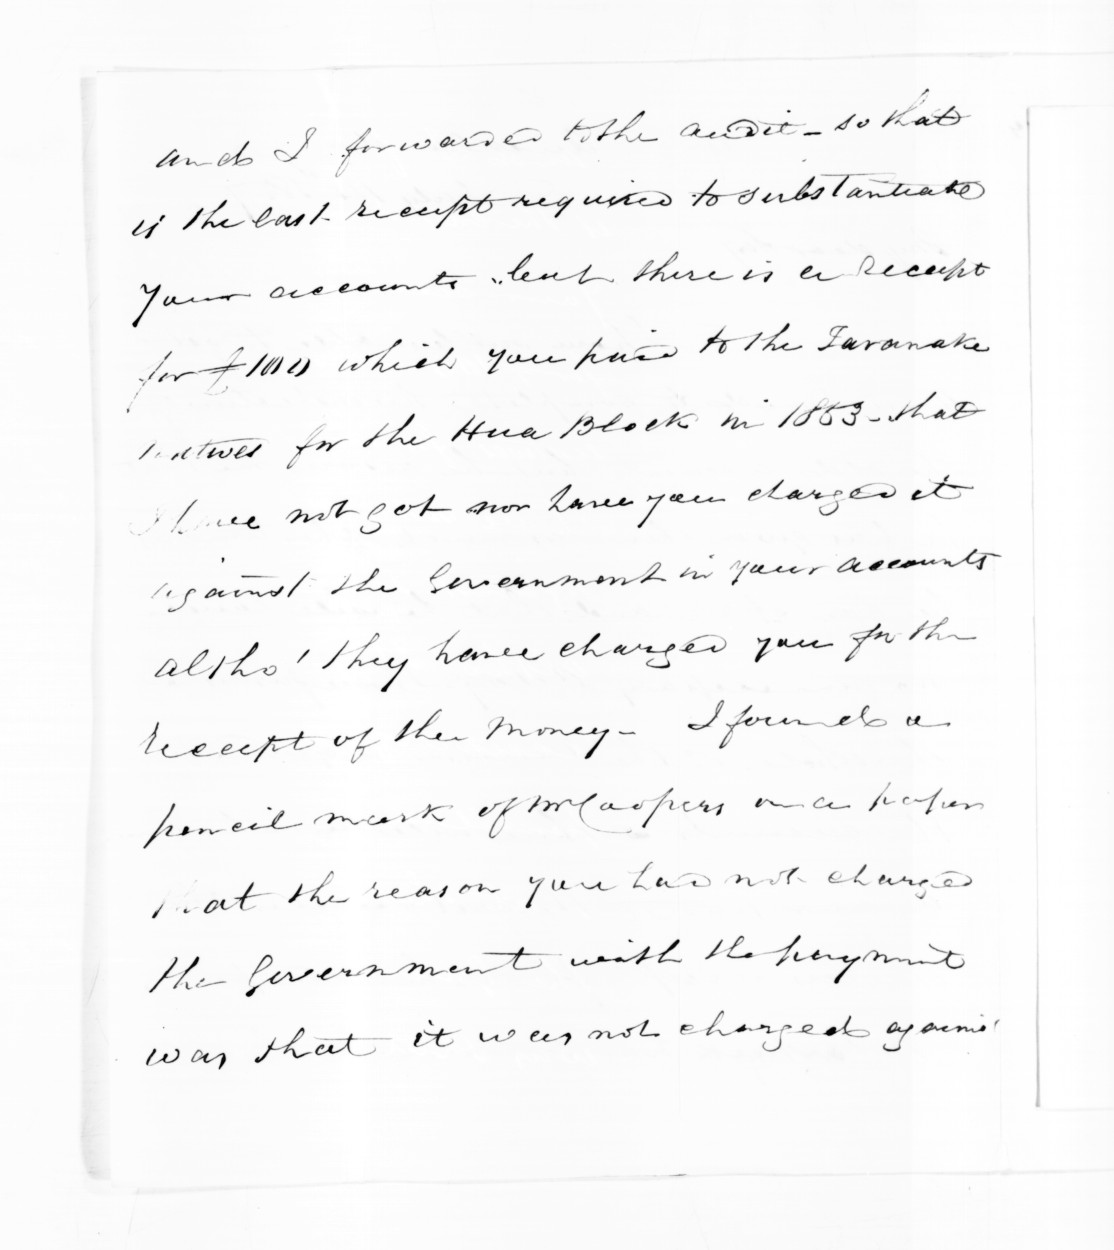 and I forwarded to the audit - so that
is the last receipt required to substantiate
your accounts, but there is a receipt
for £100 which you paid to the Taranake
natives for the Hua Block in 1853 - that
I have not got nor have you charged it
against the Government in your accounts
altho' they have charged you for the
receipt of the money - I found a
pencil mark of Mr Coopers on a paper
that the reason you had not charged
the Government with the payment
was that it was not charged against